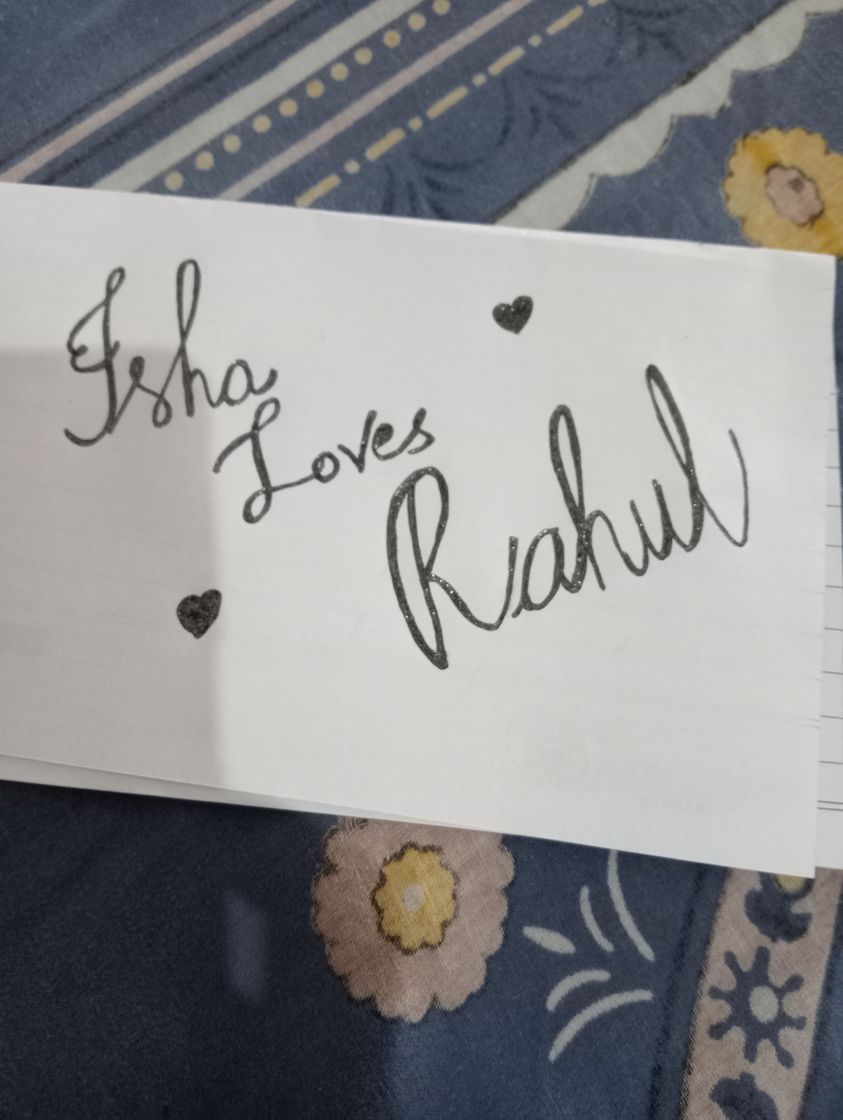 Isha
Loves
Rahul